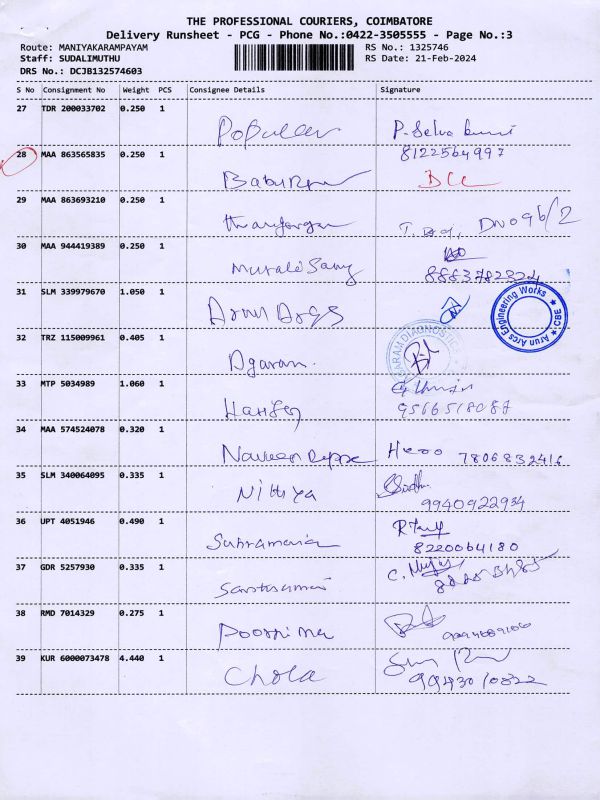 THE PROFESSIONAL COURIERS, COIMBATORE
Delivery Runsheet - PCG - Phone No.:0422-3505555 - Page No.:3
Route: MANIYAKARAMPAYAM RS No.: 1325746
Staff: SUDALIMUTHU RS Date: 21-Feb-2024
DRS No.: DCJB132574603
S No Consignment No Weight PCS Consignee Details Signature
27 TDR 200033702 0.250 1
Popular P. Selva kumi
8122564997
28 MAA 863565835 0.250 1
29 MAA 863693210 0.250 1
DNo 96/2
30 MAA 944419389 0.250 1
Murali Samy 8883782324
31 SLM 339979670 1.050 1
Arun Args
Arun Arcs Engineering Works ★ CBE ★
32 TRZ 115009961 0.405 1
Agaram.
AGARAM DIAGNOSTICS
33 MTP 5034989 1.060 1
9566518087
34 MAA 574524078 0.320 1
Naveen Hero 7806832416
35 SLM 340064095 0.335 1
Nithya 9940922934
36 UPT 4051946 0.490 1
8220064180
37 GDR 5257930 0.335 1
38 RMD 7014329 0.275 1
Poornima
39 KUR 6000073478 4.440 1
Chola
9943010822